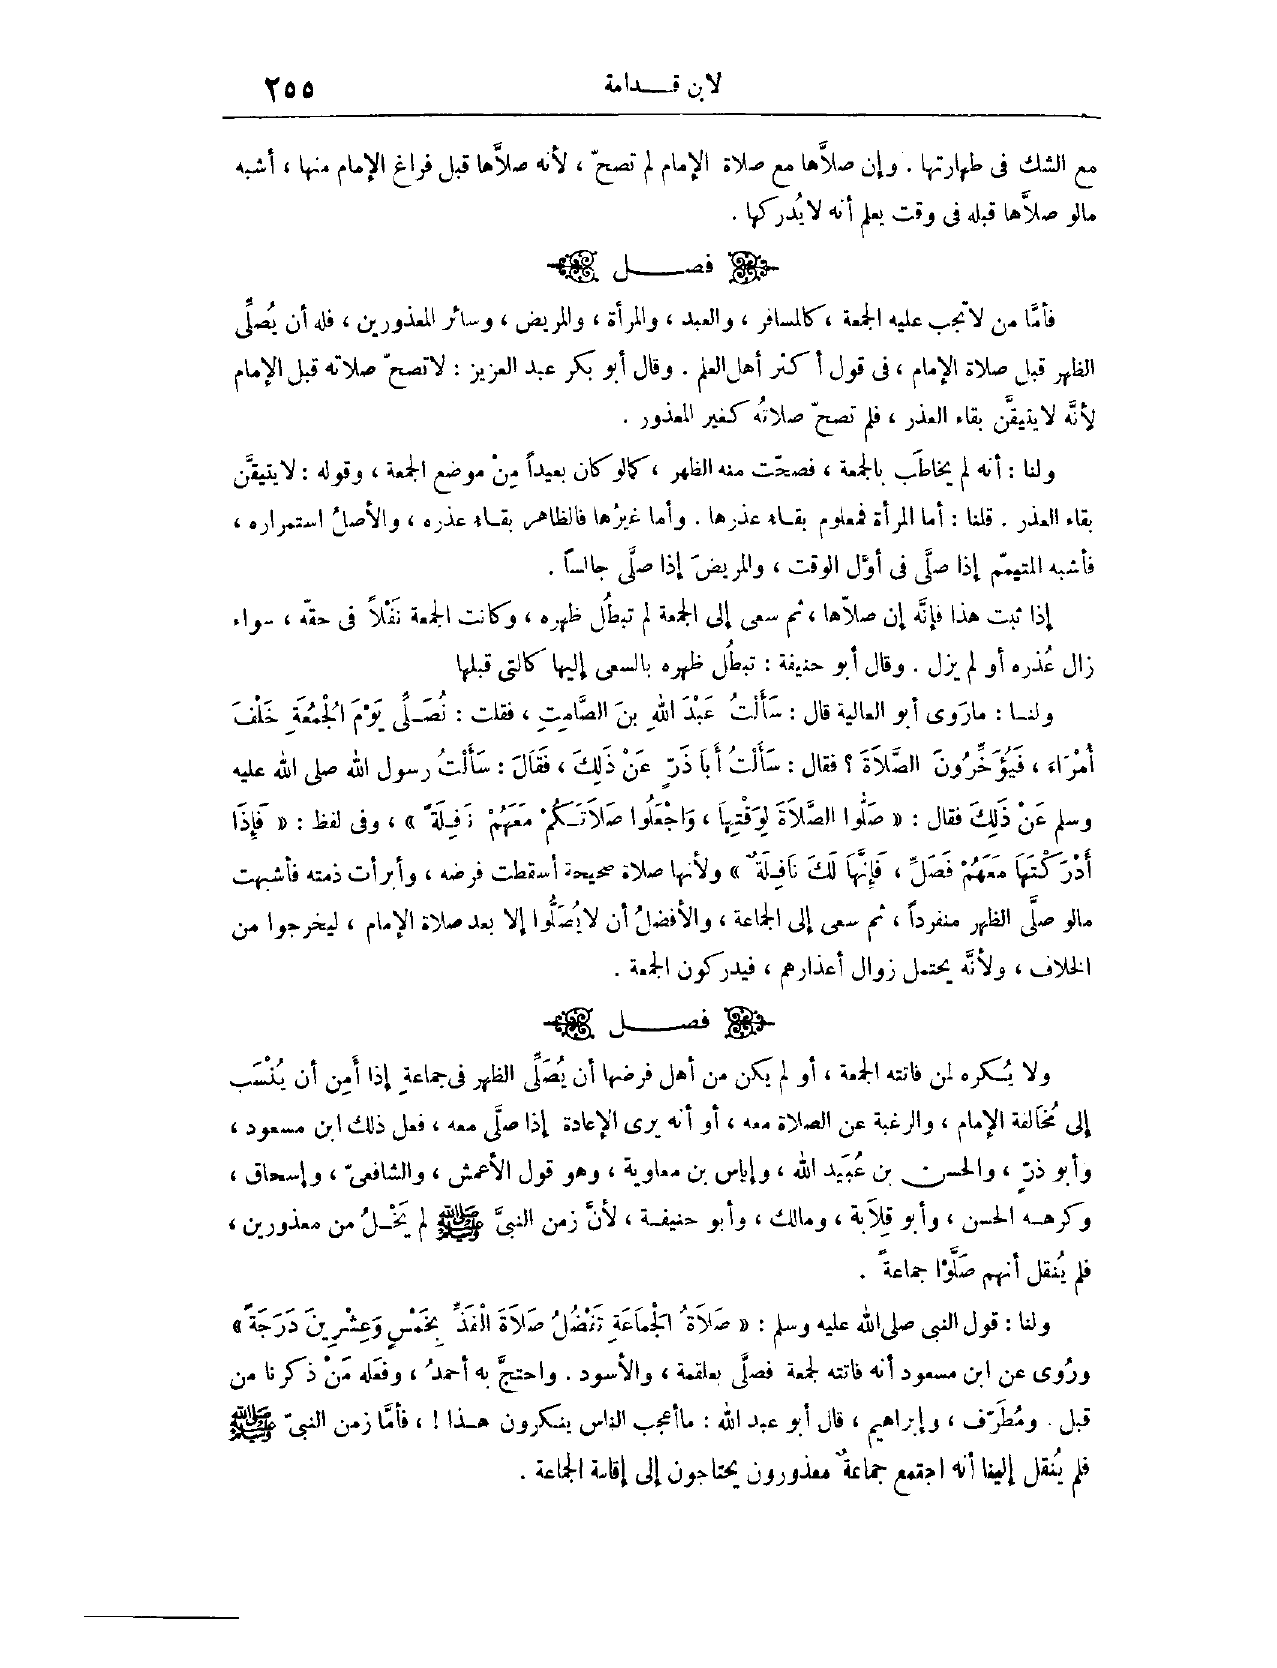 لابن قـــدامة ٢٥٥
مع الشك فى طهارتها . وإن صلاَّها مع صلاة الإمام لم تصحّ ، لأنه صلاَّها قبل فراغ الإمام منها ، أشبه
مالو صلاَّها قبله فى وقت يعلم أنه لا يُدركها .
فصـــــل
فأمَّا من لاتجب عليه الجمعة ، كالمسافر ، والعبد ، والمرأة ، والمريض ، وسائر المعذورين ، فله أن يُصلِّى
الظهر قبل صلاة الإمام ، فى قول أكثر أهل العلم . وقال أبو بكر عبد العزيز : لاتصحّ صلاته قبل الإمام
لأنَّه لا يتيقَّن بقاء العذر ، فلم تصحّ صلاتُه كغير المعذور .
ولنا : أنه لم يخاطَب بالجمعة ، فصحّت منه الظهر ، كمالو كان بعيداً مِنْ موضع الجمعة ، وقوله : لايتيقَّن
بقاء العذر . قلنا : أما المرأة فمعلوم بقـاء عذرها . وأما غيرُها فالظاهر بقـاء عذره ، والأصلُ استمراره ،
فأشبه المتيمّم إذا صلَّى فى أوَّل الوقت ، والمريضَ إذا صلَّى جالساً .
إذا ثبت هذا فإنَّه إن صلاّها ، ثم سعى إلى الجمعة لم تبطُل ظهره ، وكانت الجمعة نَفْلاً فى حقّه ، سواء
زال عُذره أو لم يزل . وقال أبو حنيفة : تبطُل ظهره بالسعى إليها كالتى قبلها
ولنـا : مارَوى أبو العالية قال : سَأَلْتُ عَبْدَ اللهِ بنَ الصَّامِتِ ، فقلت : نُصَـلِّى يَوْمَ الْجُمُعَةِ خَلْفَ
أُمْرَاء ، فَيُؤَخِّرُونَ الصَّلاَةَ ؟ فقال : سَأَلْتُ أَبَا ذَرٍّ عَنْ ذَلِكَ ، فَقَالَ : سَأَلْتُ رسول الله صلى الله عليه
وسلم عَنْ ذَلِكَ فقال : « صَلُّوا الصَّلاَةَ لِوَقْتِهَا ، وَاجْعَلُوا صَلاَتَـكُمْ مَعَهُمْ نَافِلَةً » ، وفى لفظ : « فَإِذَا
أَدْرَكْتَهَا مَعَهُمْ فَصَلِّ ، فَإِنَّهَا لَكَ نَافِلَةٌ » ولأنها صلاة صحيحة أسقطت فرضه ، وأبرأت ذمته فأشبهت
مالو صلَّى الظهر منفرداً ، ثم سعى إلى الجماعة ، والأفضلُ أن لايُصَلُّوا إلا بعد صلاة الإمام ، ليخرجوا من
الخلاف ، ولأنَّه يحتمل زوال أعذارهم ، فيدركون الجمعة .
فصـــــل
ولا يُـكره لمن فاتته الجمعة ، أو لم يكن من أهل فرضها أن يُصَلِّى الظهر فى جماعةٍ إذا أَمِن أن يُنْسَب
إلى مُخَالفة الإمام ، والرغبة عن الصلاة معه ، أو أنه يرى الإعادة إذا صلَّى معه ، فعل ذلك ابن مسعود ،
وأبو ذرٍّ ، والحسن بن عُبَيد الله ، وإياس بن معاوية ، وهو قول الأعمش ، والشافعىّ ، وإسحاق ،
وكرهـه الحسن ، وأبو قِلَابة ، ومالك ، وأبو حنيفـة ، لأنَّ زمن النبىّ ﷺ لم يَخْـلُ من معذورين ،
فلم يُنقل أنهم صَلَّوْا جماعةً .
ولنا : قول النبى صلى الله عليه وسلم : « صَلاَةُ الْجَمَاعَةِ تَفْضُلُ صَلاَةَ الْفَذِّ بِخَمْسٍ وَعِشْرِينَ دَرَجَةً »
ورُوى عن ابن مسعود أنه فاتته لجمعة فصلَّى بعلقمة ، والأسود . واحتجَّ به أحمدُ ، وفعَله مَنْ ذكرنا من
قبل . ومُطَرّف ، وإبراهيم ، قال أبو عبد الله : ماأعجب الناس ينـكرون هـذا ! ، فأمَّا زمن النبىّ ﷺ
فلم يُنقل إلينا أنه اجتمع جماعةٌ معذورون يحتاجون إلى إقامة الجماعة .